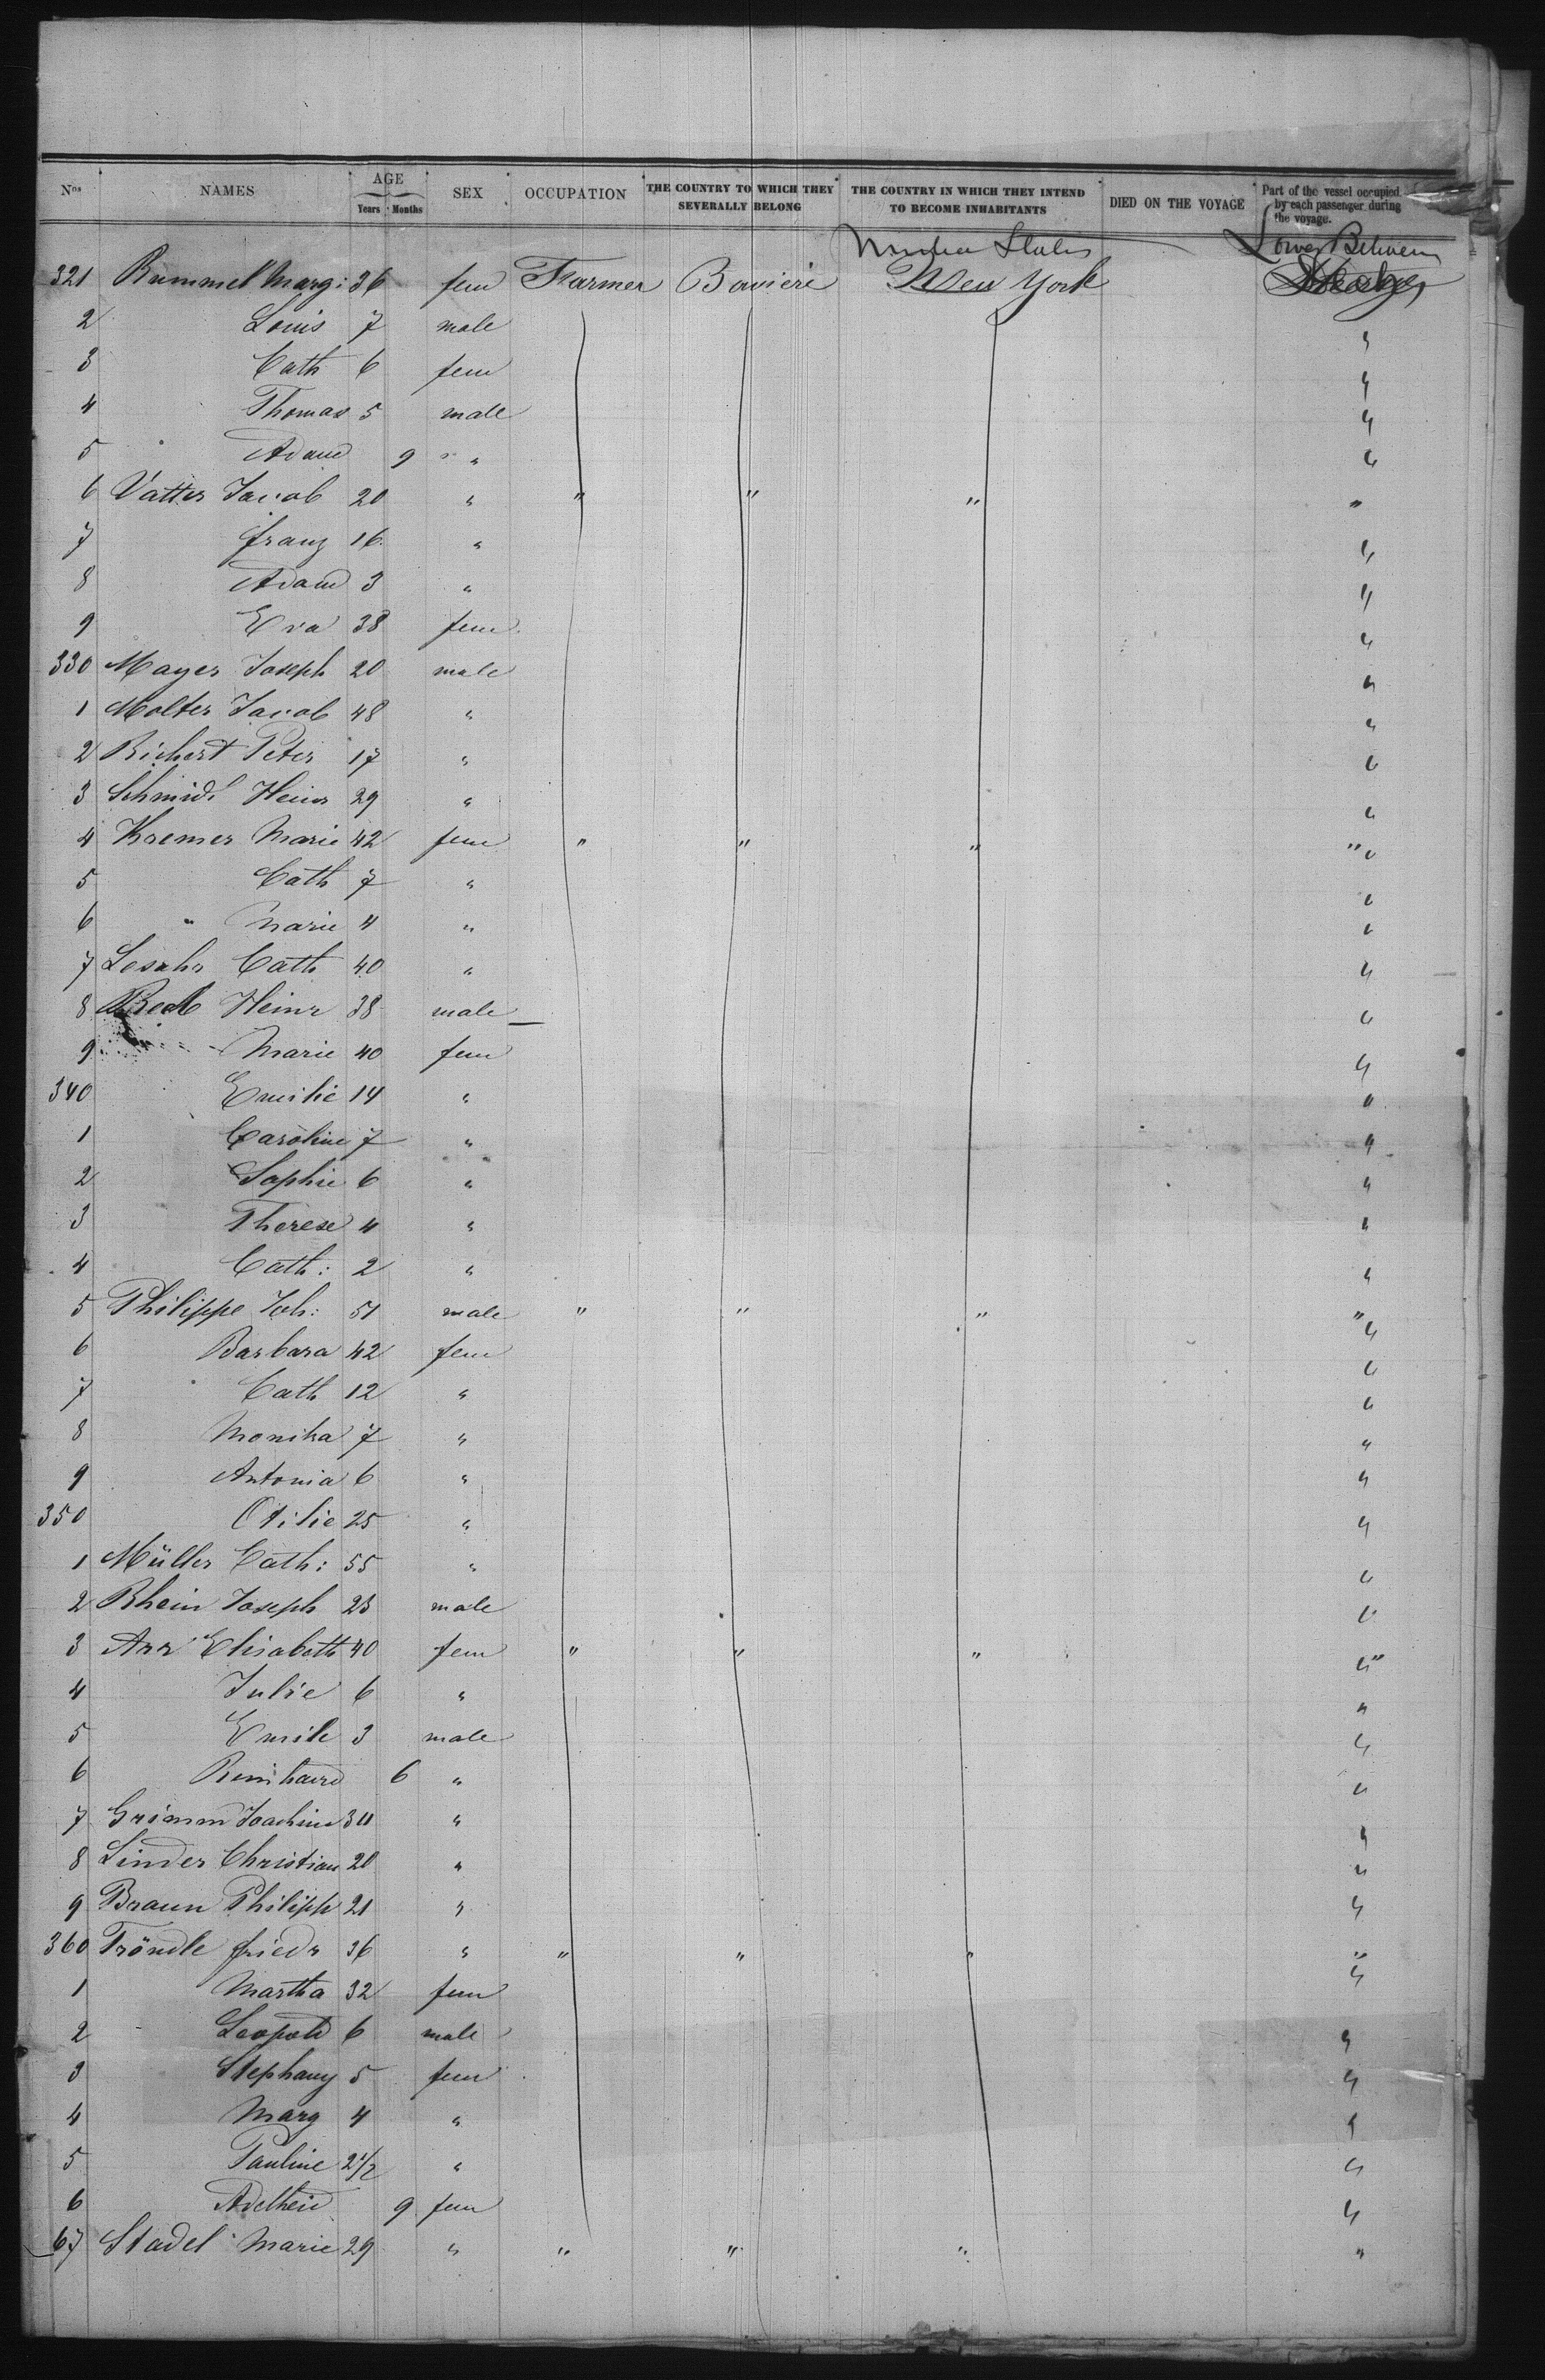 Nos NAMES AGE Years Months SEX OCCUPATION THE COUNTRY TO WHICH THEY SEVERALLY BELONG THE COUNTRY IN WHICH THEY INTEND TO BECOME INHABITANTS DIED ON THE VOYAGE Part of the vessel occupied by each passenger during the voyage.
United States Lower Between
321 Rummel Marg: 36 fem Farmer Baviere New York
2 Louis 7 male "
3 Cath 6 fem "
4 Thomas 5 male "
5 Adam 9 " "
6 Vatter Jacob 20 " " " " "
7 franz 16 " "
8 Adam 3 " "
9 Eva 38 fem "
330 Mayer Joseph 20 male "
1 Molter Jacob 48 " "
2 Richert Peter 17 " "
3 Schmidt Heinr 29 " "
4 Kremer Marie 42 fem " " " " "
5 Cath 7 " "
6 " Marie 4 " "
7 Cath 40 " "
8 Beck Heinr 38 male "
9 Marie 40 fem "
340 Emilie 14 " "
1 Caroline 7 " "
2 Sophie 6 " "
3 Therese 4 " "
4 Cath: 2 " "
5 Philippe Joh: 51 male " " " " "
6 Barbara 42 fem "
7 Cath 12 " "
8 Monika 7 " "
9 Antonia 6 " "
350 Otilie 25 " "
1 Müller Cath: 55 " "
2 Rhein Joseph 23 male "
3 Arr Elisabeth 40 fem " " " " "
4 Julie 6 " "
5 Emile 3 male "
6 Reinhard 6 " "
7 Grimm Joachim 34 " "
8 Linder Christian 20 " "
9 Braun Philipp 21 " "
360 Tröndle friedr 36 " " " " " "
1 Martha 32 fem
2 Leopold 6 male "
3 Stephany 5 fem "
4 Marg 4 " "
5 Pauline 2 1/2 " "
6 Adelheid 9 fem "
67 Stadel Marie 29 " " " " "